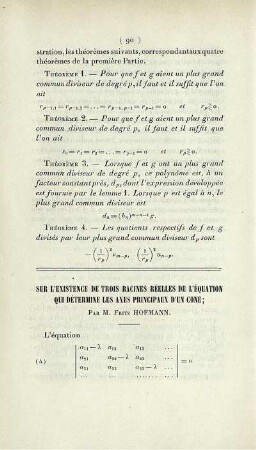 ( 90 )
stration, les théorèmes suivants, correspondant aux quatre
théorèmes de la première Partie.
THÉORÈME 1. — Pour que f et g aient un plus grand
commun diviseur de degré p, il faut et il suffit que l'on
ait
THÉORÈME 2. — Pour que f et g aient un plus grand
commun diviseur de degré p, il faut et il suffit que
l'on ait
THÉORÈME 3. — Lorsque f et g ont un plus grand
commun diviseur de degré p, ce polynôme est, à un
facteur constant près, dp, dont l'expression développée
est fournie par le lemme 1. Lorsque p est égal à n, le
plus grand commun diviseur est
THÉORÈME 4. — Les quotients respectifs de f et g
divisés par leur plus grand commun diviseur dp sont
SUR L'EXISTENCE DE TROIS RACINES RÉELLES DE L'ÉQUATION
QUI DÉTERMINE LES AXES PRINCIPAUX D'UN CONE;
PAR M. FRITZ HOFMANN.
L'équation
a11 — λ a12 a13 ...
(A) a21 a22 — λ a23 ... = 0
a31 a32 a33 — λ ...
... ... ... ...